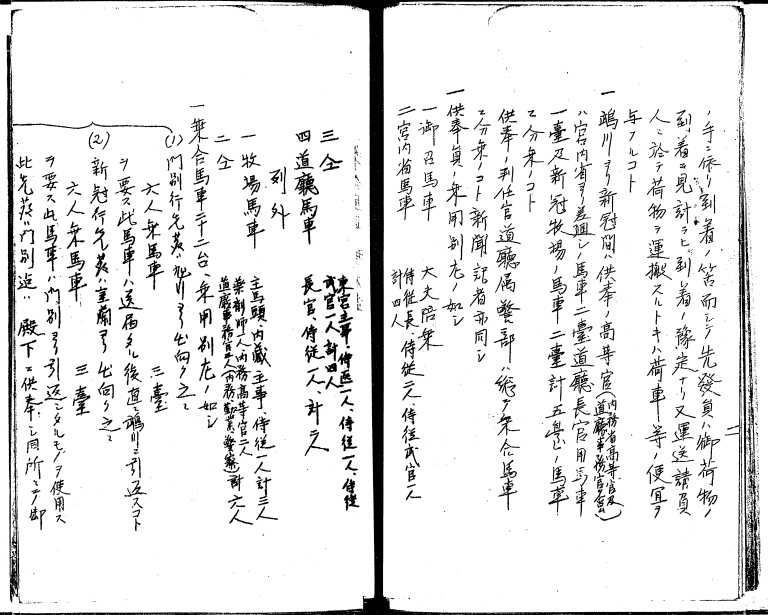 二
ノ手ニ依リ到着ノ筈而シテ先發員ハ御荷物ノ
到着ヲ見計ラヒ到着ノ豫定ナリ又運送請負
人ニ於テ荷物ヲ運搬スルトキハ荷車等ノ便宜ヲ
与フルコト
一 鵡川ヨリ新冠間ハ供奉ノ高等官(内務省高等官及道廳事務官ヲ含ム)
ハ宮内省ヨリ差廻シノ馬車二臺道廳長官用馬車
一臺及新冠牧場ノ馬車二臺計五臺ノ馬車
ニ分乗ノコト
供奉ノ判任官道廳属警部ハ総テ乗合馬車
ニ分乗ノコト新聞記者亦同シ
一 供奉員ノ乗用別左ノ如シ
一 御召馬車 大夫陪乗
二 宮内省馬車 侍従長、侍従二人、侍従武官一人
計四人
三 仝 東宮主事、侍医一人、侍従一人、侍従
武官一人計四人
四 道廳馬車 長官、侍従一人、計二人
列外
一 牧場馬車 主馬頭、内蔵主事、侍従一人計三人
二 仝 薬剤師一人内務高等官二人
道廳事務官三人(内務、勧業、警察)計六人
一 乗合馬車二十二台、乗用別左ノ如シ
(1) 門別行先発ハ旭川ヨリ出向クモノ
六人乗馬車 三臺
ヲ要ス此馬車ハ送届タル後直ニ鵡川ニ引返スコト
(2) 新冠行先発ハ室蘭ヨリ出向クモノ
六人乗馬車 三臺
ヲ要ス此馬車ハ門別ヨリ引返シタルモノヲ使用ス
此先発ハ門別迄ハ殿下ニ供奉シ同所ニテ御